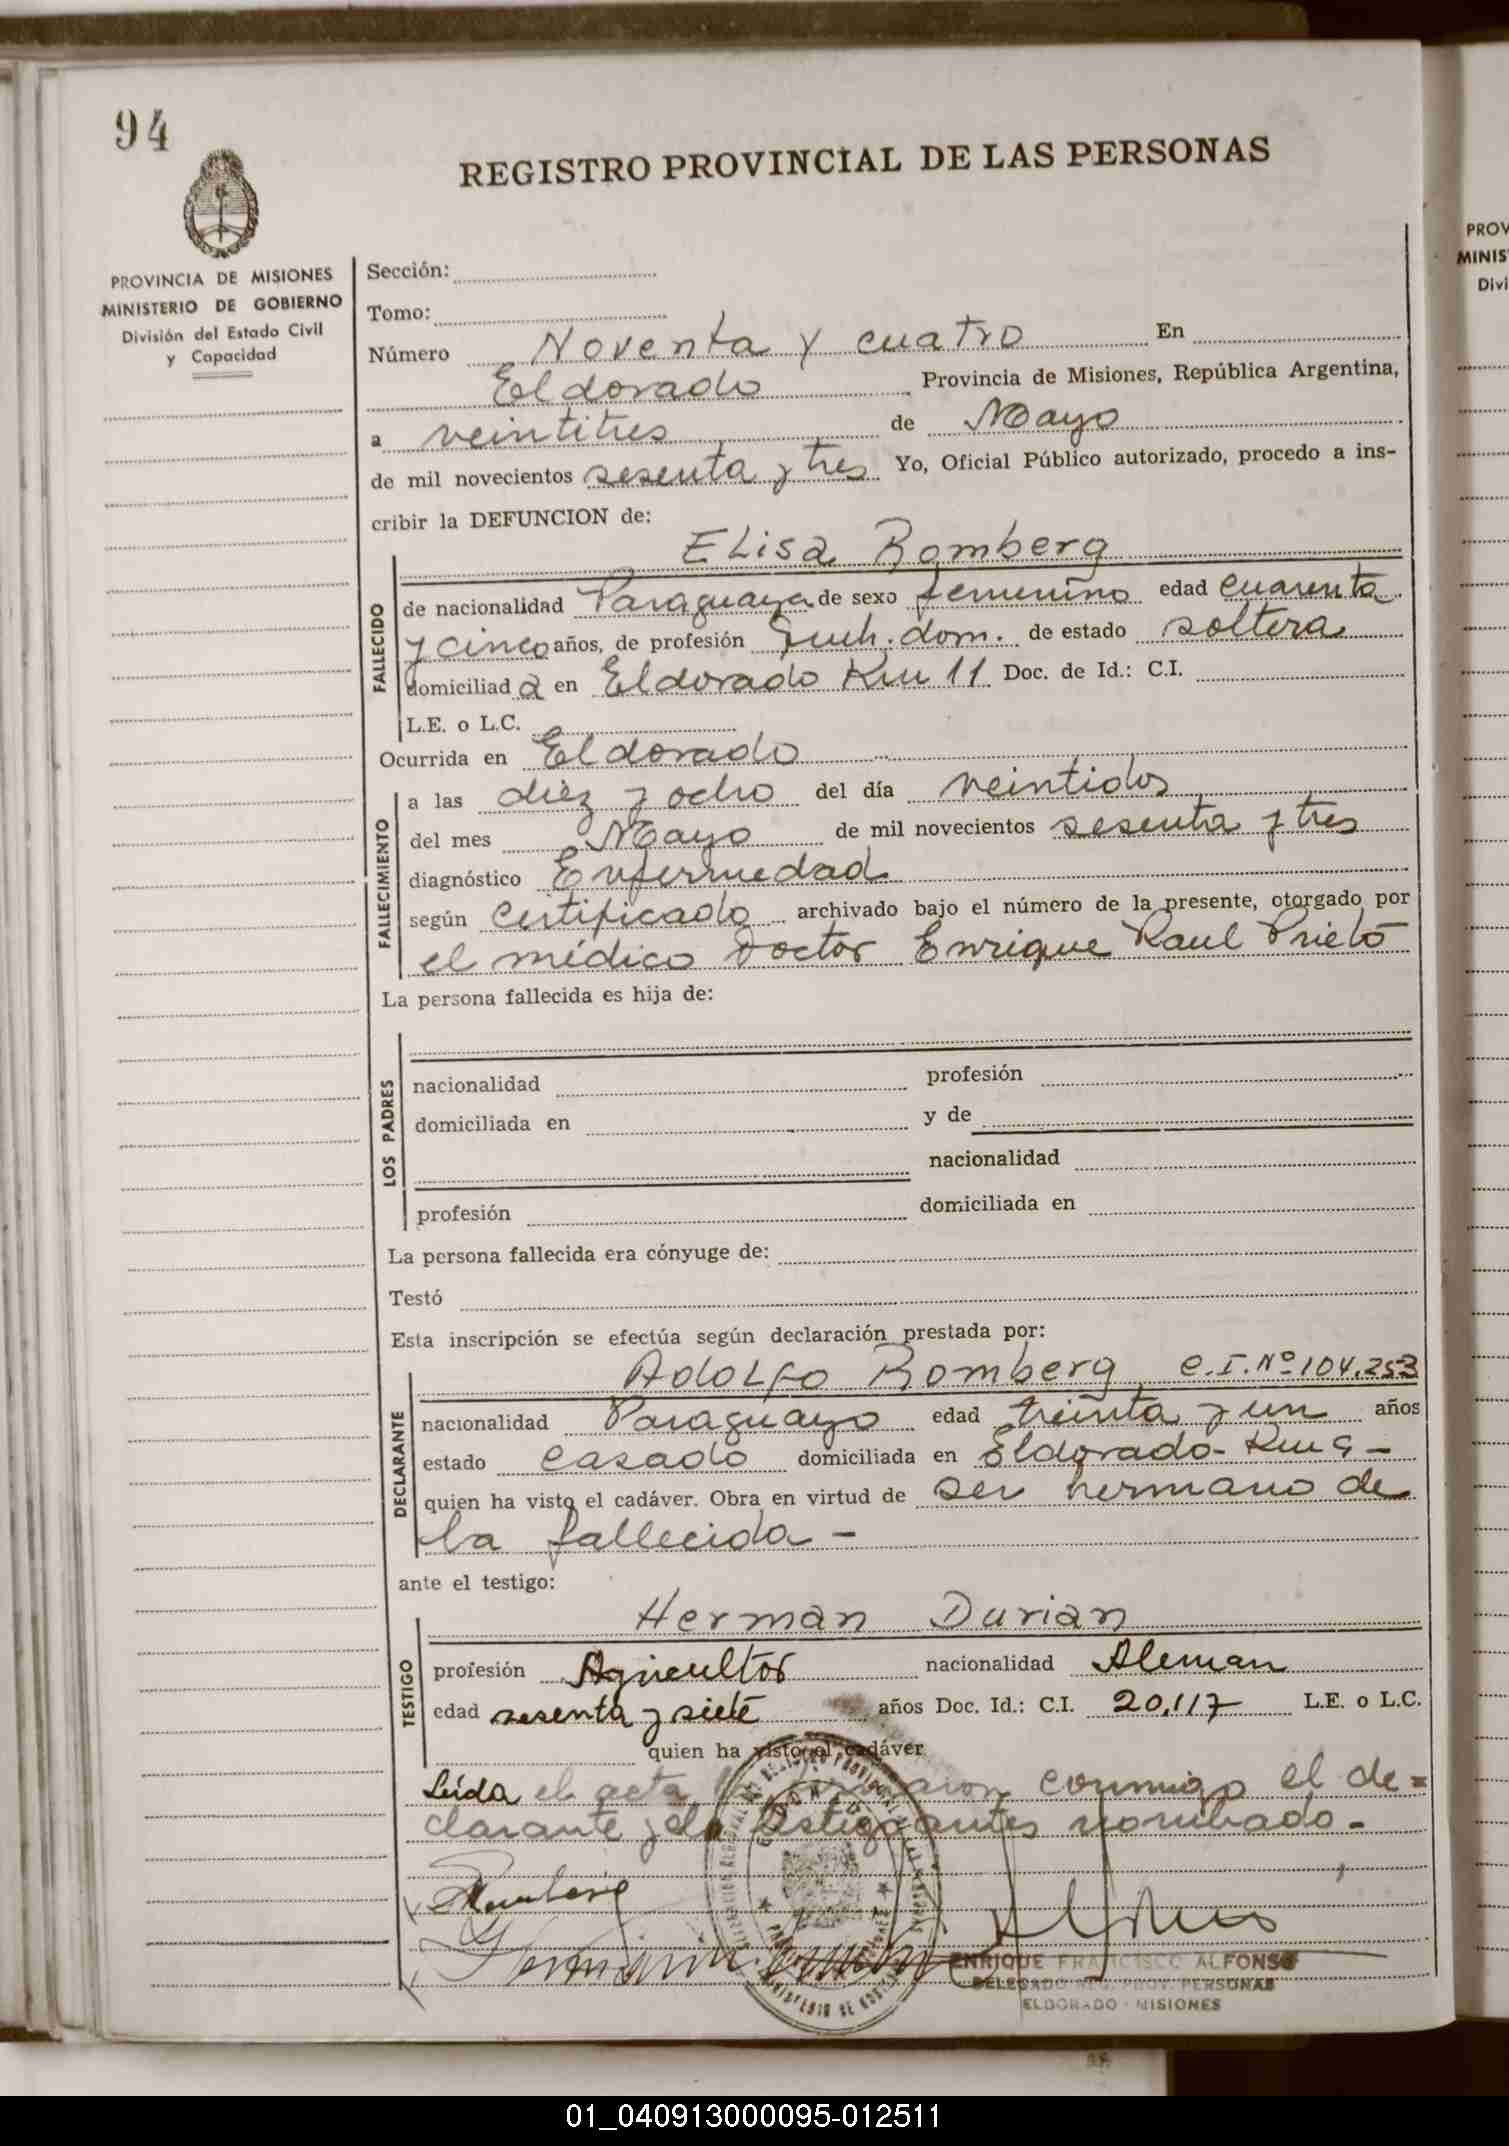 94
REGISTRO PROVINCIAL DE LAS PERSONAS
PROVINCIA DE MISIONES
MINISTERIO DE GOBIERNO
División del Estado Civil
y Capacidad
Sección:
Tomo:
Número Noventa y cuatro En
Eldorado Provincia de Misiones, República Argentina,
a veintitres de Mayo
de mil novecientos sesenta y tres Yo, Oficial Público autorizado, procedo a ins-
cribir la DEFUNCION de:
ELisa Romberg
FALLECIDO
de nacionalidad Paraguaya de sexo femenino edad cuarenta
y cinco años, de profesión dom. de estado soltera
domiciliad a en Eldorado Km 11 Doc. de Id.: C.I.
L.E. o L.C.
Ocurrida en Eldorado
FALLECIMIENTO
a las diez y ocho del día veintidos
del mes Mayo de mil novecientos sesenta y tres
diagnóstico Enfermedad
según certificado archivado bajo el número de la presente, otorgado por
el médico Doctor Enrique Raul Prieto
La persona fallecida es hija de:
LOS PADRES
nacionalidad profesión
domiciliada en y de
nacionalidad
profesión domiciliada en
La persona fallecida era cónyuge de:
Testó
Esta inscripción se efectúa según declaración prestada por:
ADOLFO Romberg C.I. Nº 104.253
DECLARANTE
nacionalidad Paraguayo edad treinta y un años
estado casado domiciliada en Eldorado - Km 9 -
quien ha visto el cadáver. Obra en virtud de ser hermano de
la fallecida -
ante el testigo:
Herman Durian
TESTIGO
profesión Agricultor nacionalidad Aleman
edad sesenta y siete años Doc. Id.: C.I. 20.117 L.E. o L.C.
quien ha visto el cadáver
Leída el acta conmigo el de=
clarante y el testigo antes nombrado.-
Romberg
Hermann
ENRIQUE FRANCISCO ALFONSO
DELEGADO REG. PROV. PERSONAS
ELDORADO - MISIONES
PROV
MINIS
Divi
01_040913000095-012511